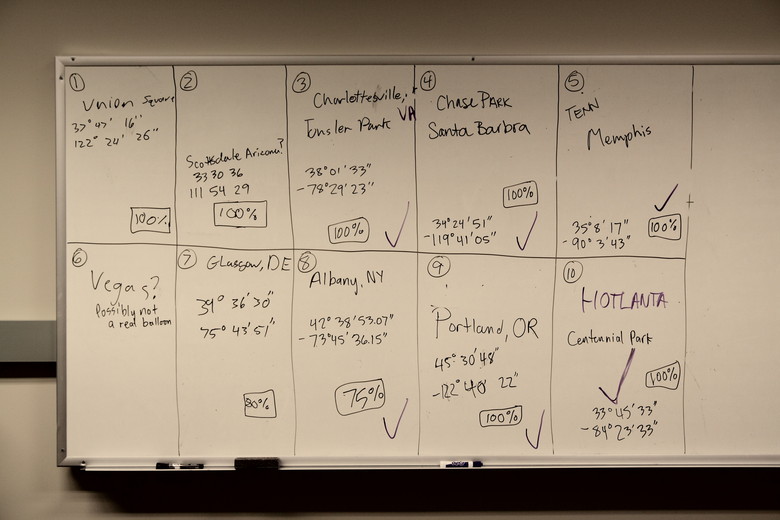 1
Union Square
37° 47' 16"
122° 24' 26"
100%
2
Scottsdale Arizona?
33 30 36
111 54 29
100%
3
Charlottesville,
VA
Tonsler Park
38°01'33"
-78°29'23"
100%
4
Chase PARK
Santa Barbra
100%
34°24'51"
-119°41'05"
5
TENN
Memphis
35°8'17"
-90°3'43"
100%
6
Vegas?
Possibly not
a real balloon
7
Glasgow, DE
39° 36'30"
75° 43'51"
80%
8
Albany, NY
42° 38'53.07"
-73°45'36.15"
75%
9
Portland, OR
45°30'48"
-122°40' 22"
100%
10
HOTLANTA
Centennial Park
100%
33°45'33"
-84°23'33"